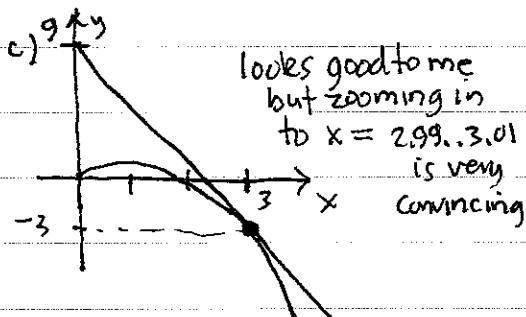 c)
9
y
looks good to me
but zooming in
to x = 2.99..3.01
is very
convincing
3
x
-3